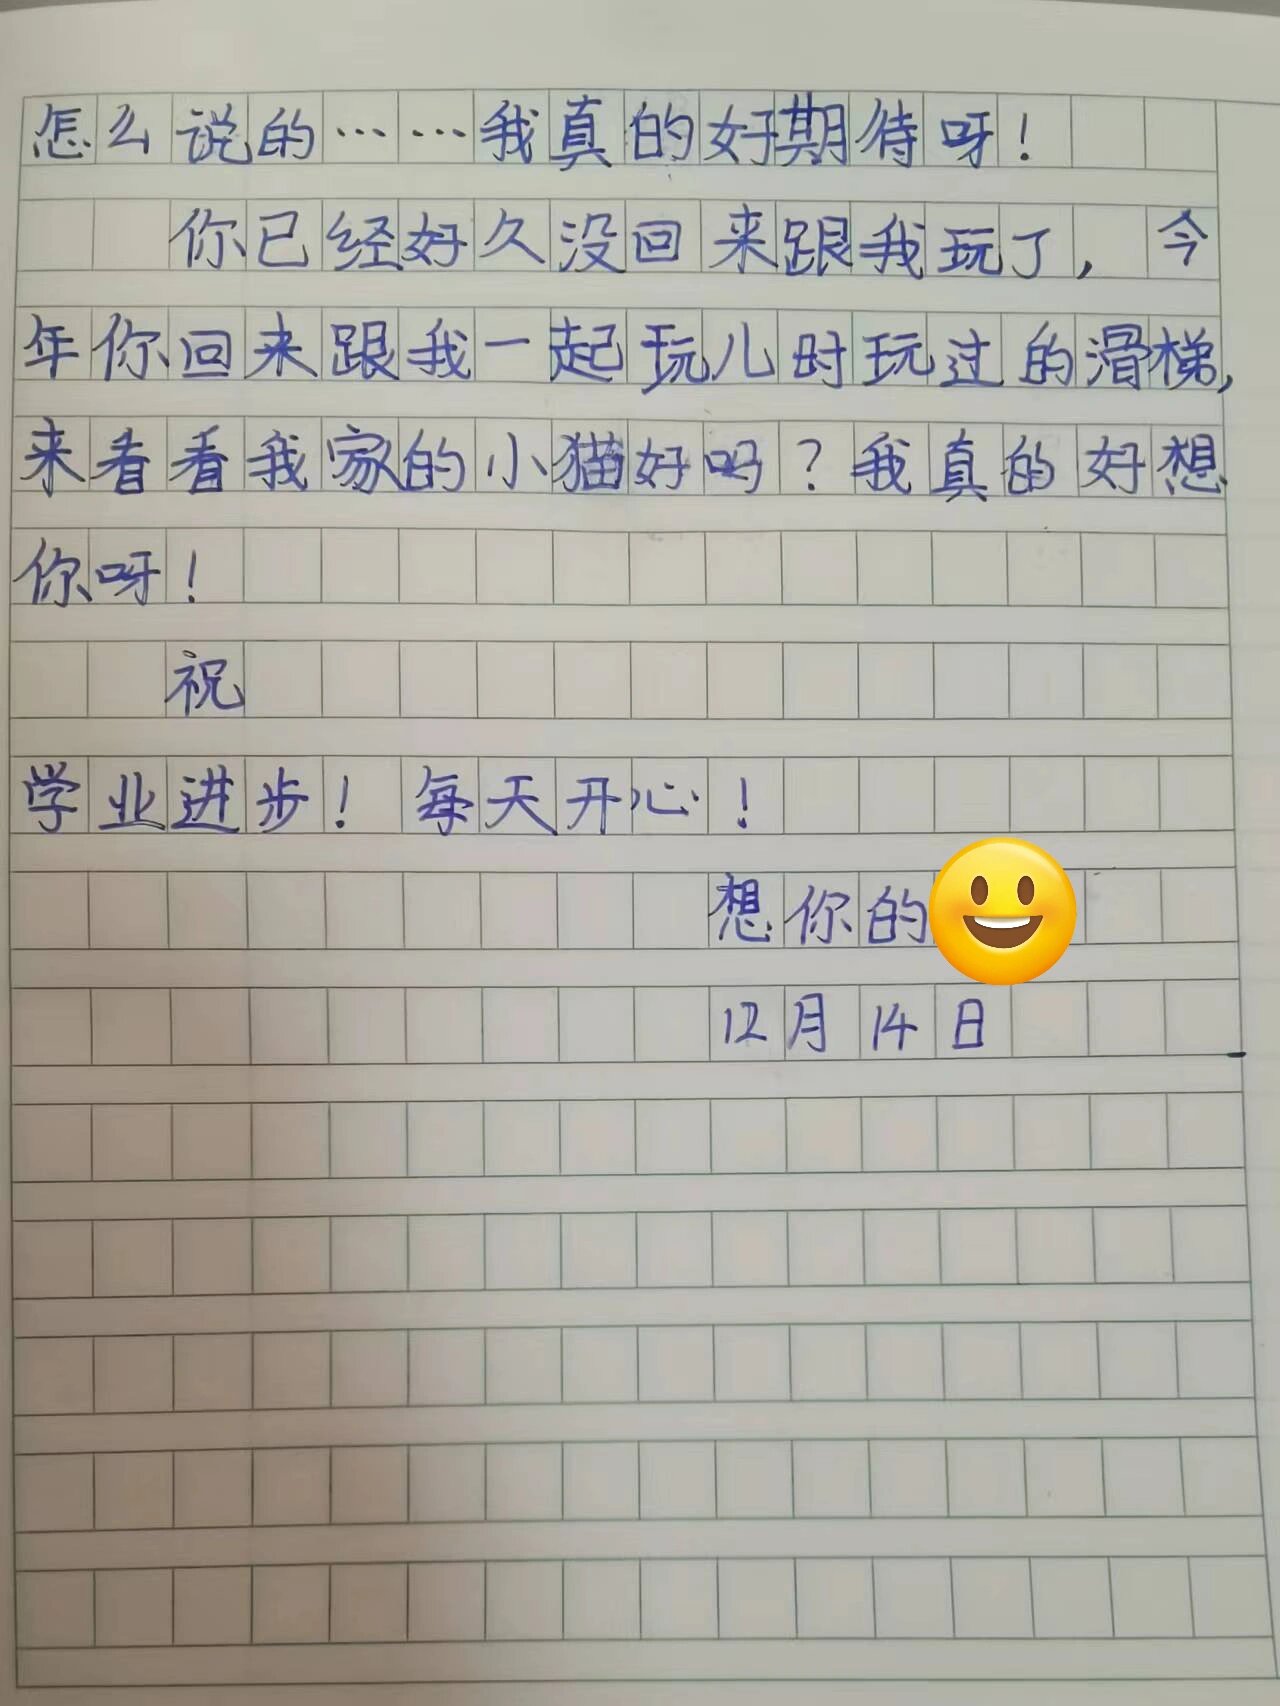 怎么说的……我真的好期待呀！
你已经好久没回来跟我玩了，今
年你回来跟我一起玩儿时玩过的滑梯，
来看看我家的小猫好吗？我真的好想
你呀！
祝
学业进步！每天开心！
想你的
12月14日